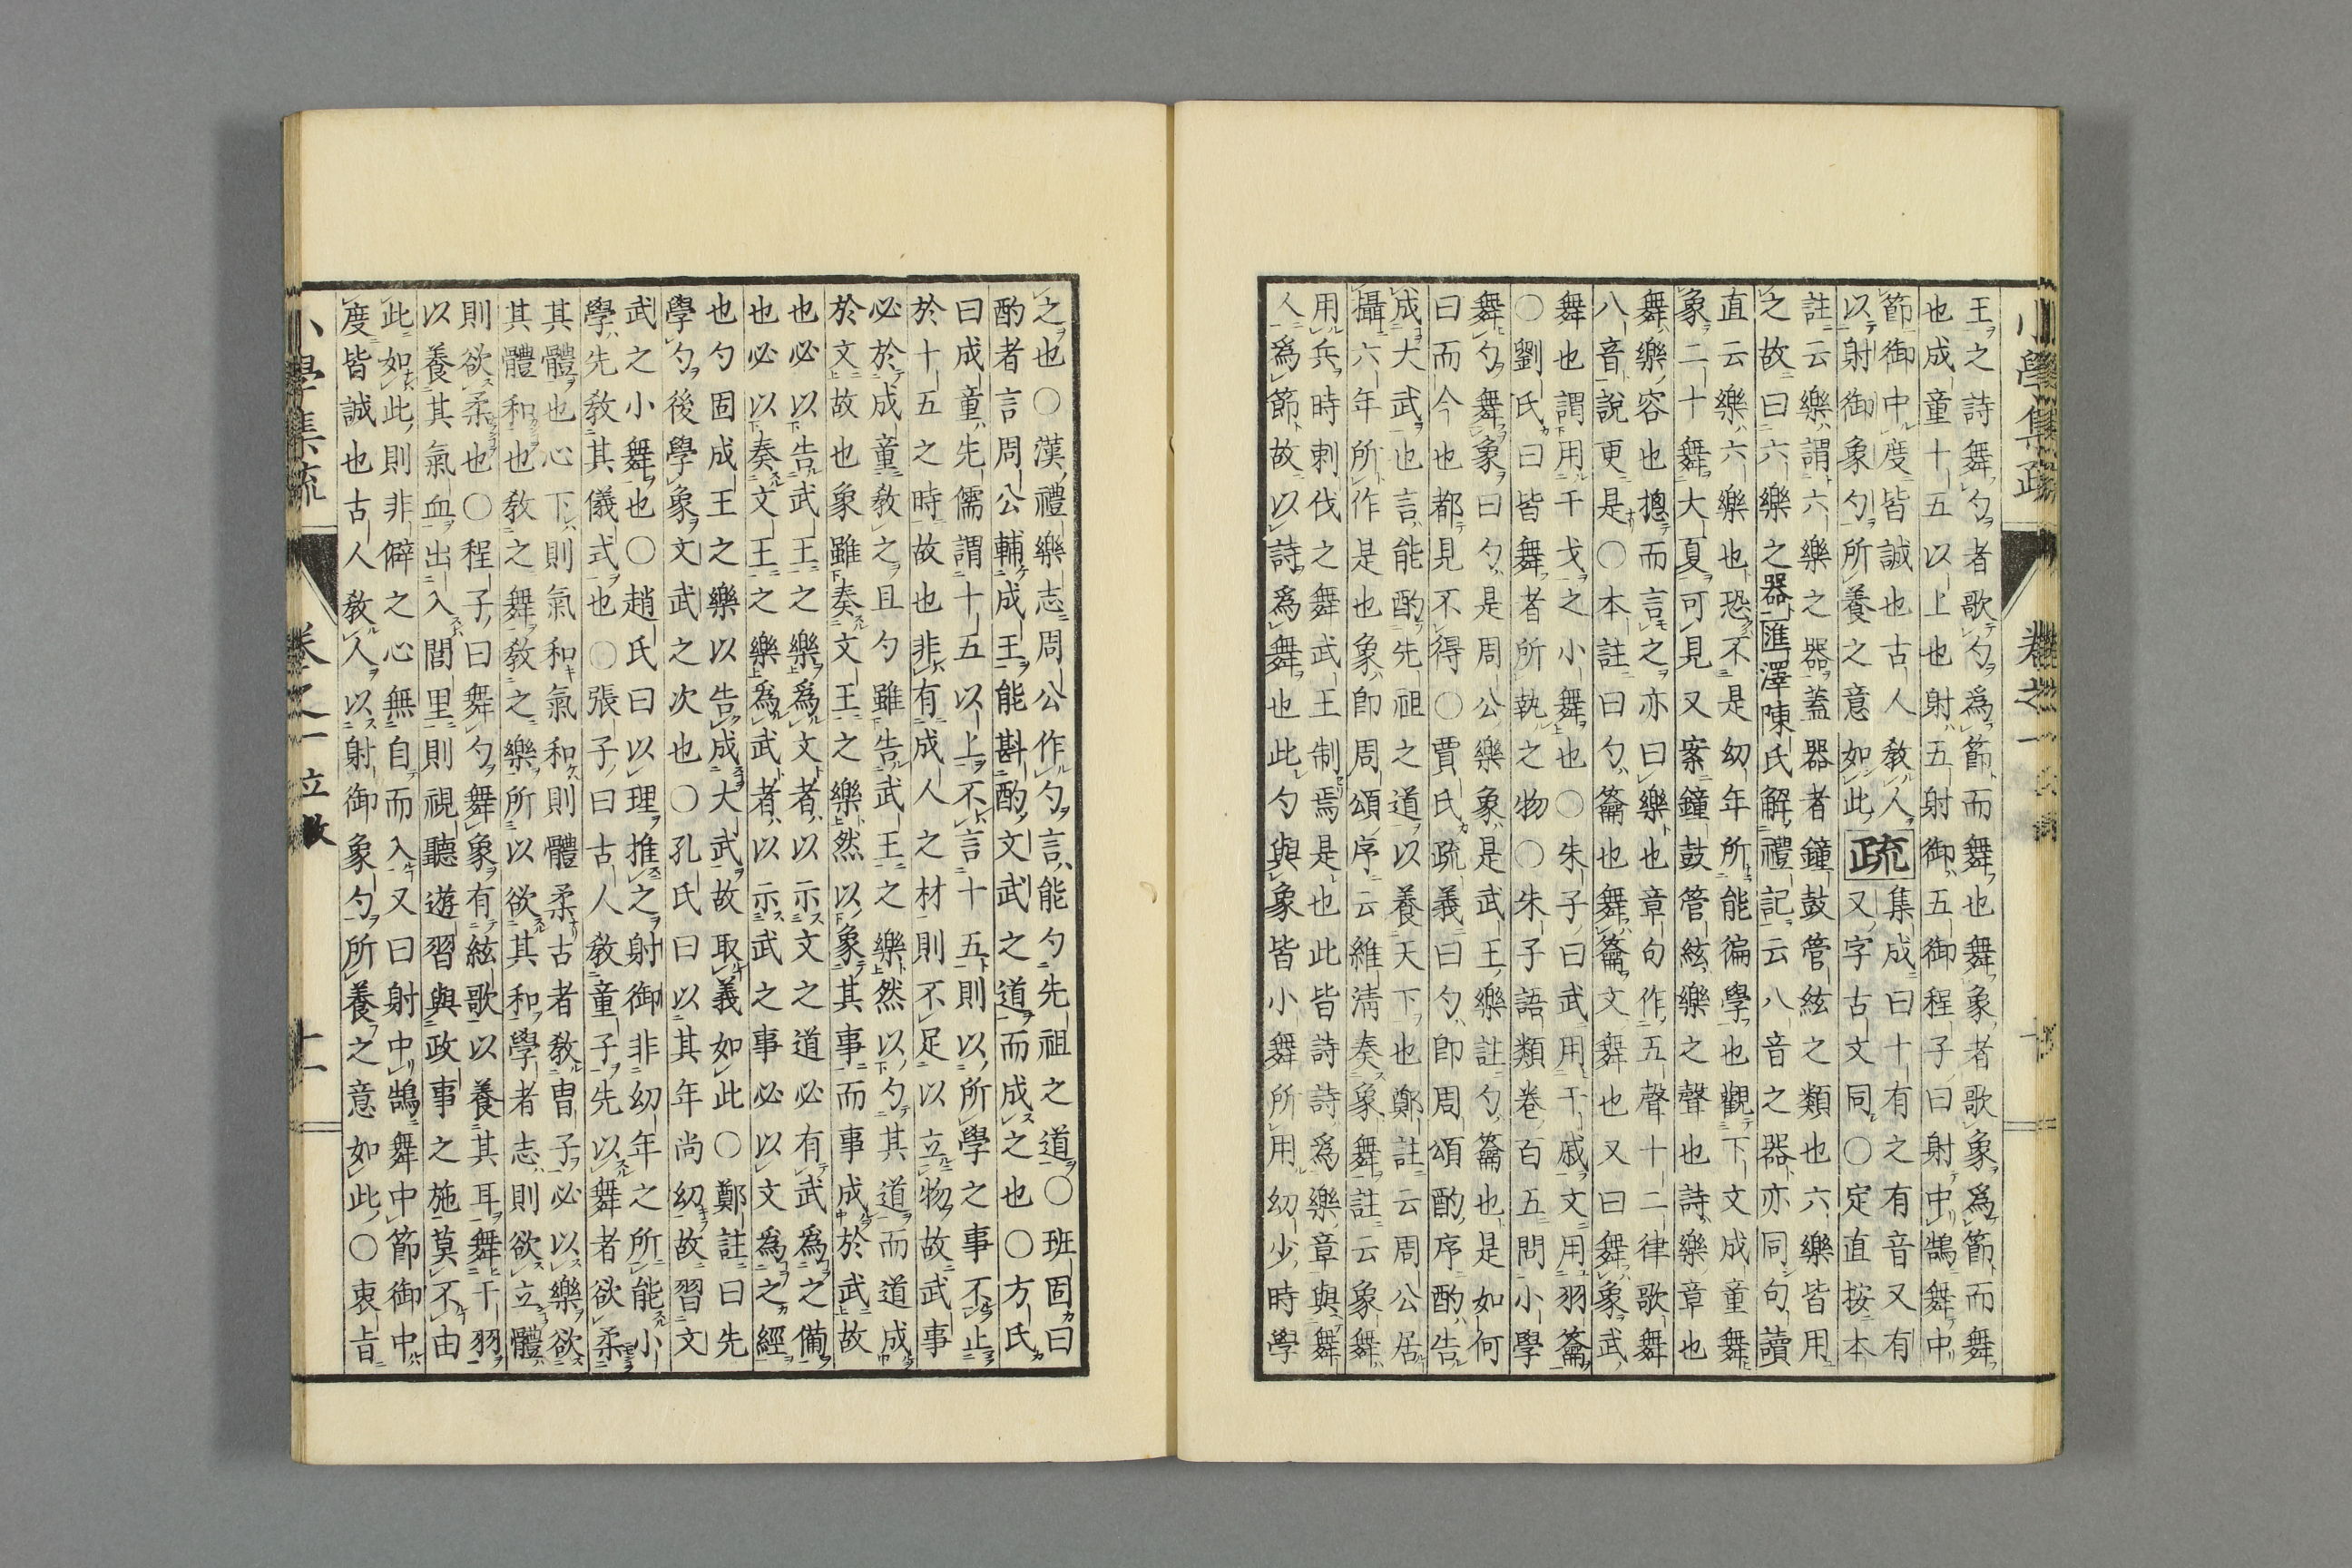 王之詩舞勺者歌勺爲節而舞也舞象者歌象爲節而舞
也成童十五以上也射五射御五御程子曰射中鵠舞中
節御中度皆誠也古人敎人
以射御象勺所養之意如此疏集成曰十有之有音又有
又字古文同○定直按本
註云樂謂六樂之器蓋器者鐘鼓管絃之類也六樂皆用
之故曰六樂之器匯澤陳氏解禮記云八音之器亦同句讀
直云樂六樂也恐不是幼年所能徧學也觀下文成童舞
象二十舞大夏可見又案鐘鼓管絃樂之聲也詩樂章也
舞樂容也摠而言之亦曰樂也章句作五聲十二律歌舞
八音說更是○本註曰勺籥也舞籥文舞也又曰舞象武
舞也謂用干戈之小舞也○朱子曰武用干戚文用羽籥
○劉氏曰皆舞者所執之物○朱子語類卷百五問小學
舞勺舞象曰勺是周公樂象是武王樂註勺籥也是如何
曰而今也都見不得○賈氏疏義曰勺卽周頌酌序酌告
成大武也言能酌先祖之道以養天下也鄭註云周公居
攝六年所作是也象卽周頌序云維淸奏象舞註云象舞
用兵時刺伐之舞武王制焉是也此皆詩詩爲樂章與舞
人爲節故以詩爲舞也此勺與象皆小舞所用幼少時學
之也○漢禮樂志周公作勺言能勺先祖之道○班固曰
酌者言周公輔成王能斟酌文武之道而成之也○方氏
曰成童先儒謂十五以上不言十五則以所學之事不止
於十五之時故也非有成人之材則不足以立物故武事
必於成童敎之且勺雖告武王之樂然以勺其道而道成
於文故也象雖奏文王之樂然以象其事而事成於武故
也必以告武王之樂爲文者以示文之道必有武爲之備
也必以奏文王之樂爲武者以示武之事必以文爲之經
也勺固成王之樂以告成大武故取義如此○鄭註曰先
學勺後學象文武之次也○孔氏曰以其年尚幼故習文
武之小舞也○趙氏曰以理推之射御非幼年之所能小
學先敎其儀式也○張子曰古人敎童子先以舞者欲柔
其體也心下則氣和氣和則體柔古者敎冑子必以樂欲
其體和也敎之舞敎之樂所以欲其和學者志則欲立體
則欲柔也○程子曰舞勺舞象有絃歌以養其耳舞干羽
以養其氣血出入閭里則視聽遊習與政事之施莫不由
此如此則非僻之心無自而入又曰射中鵠舞中節御中
度皆誠也古人敎人以射御象勺所養之意如此○衷旨
小學集疏
卷之一
立敎
十一
小學集疏
卷之一
十